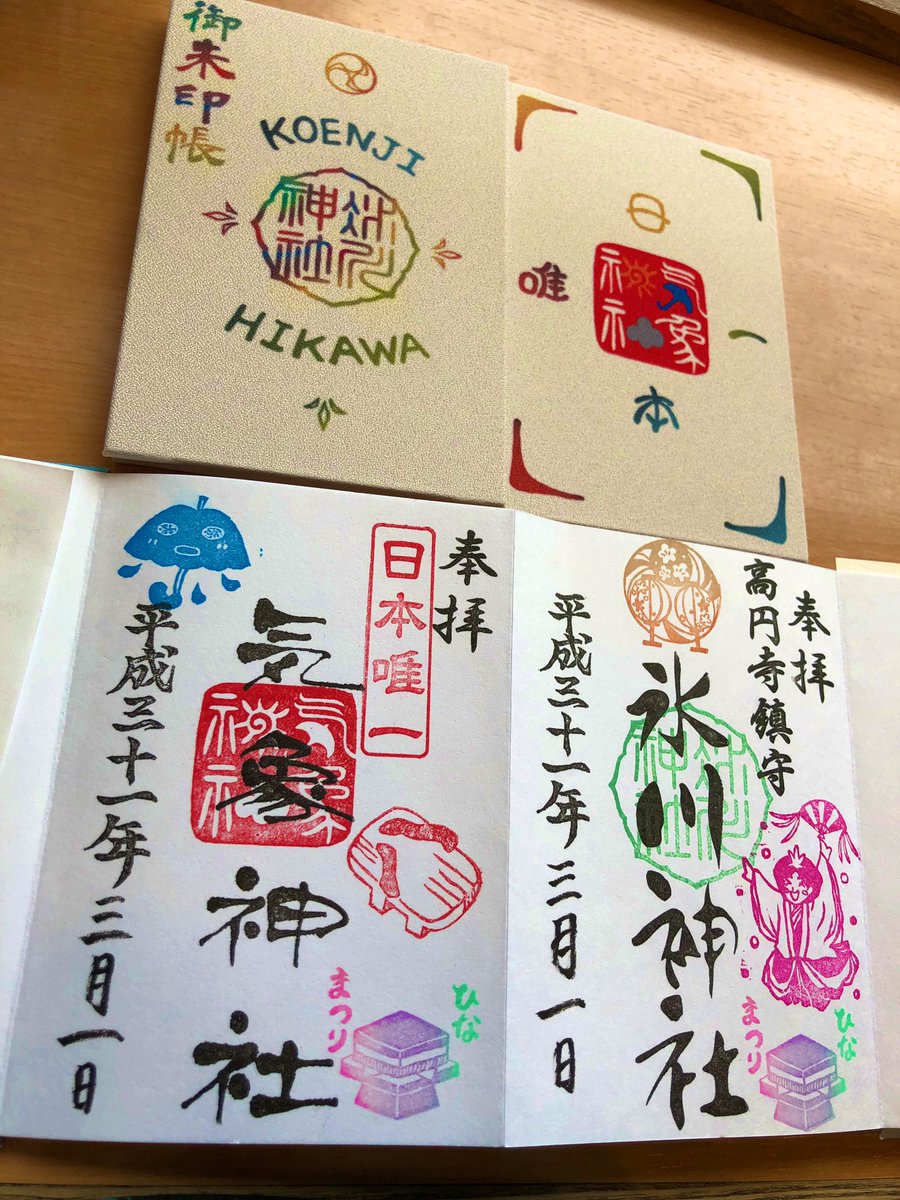 御朱印帳
KOENJI
氷川神社
HIKAWA
日本唯一
気象神社
奉拝
日本唯一
気象神社
気象神社
平成三十一年三月一日
ひな
まつり
奉拝
高円寺鎮守
氷川神社
氷川神社
平成三十一年三月一日
ひな
まつり